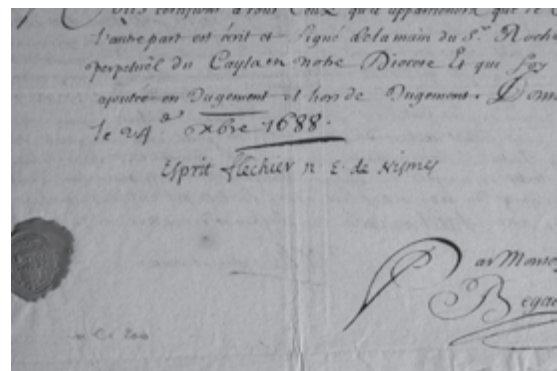 certifions a tous Ceux qu'il appartiendra que le
l'autre part est écrit et Signé de la main du Sr. Roche
perpetuel du Cayla en notre Diocese Et qui foy
ajoutée en Jugement et hors de Jugement. Donn
le 24 e xbre 1688.
Esprit flechier n. E. de Nismes
ar Monse
Begau